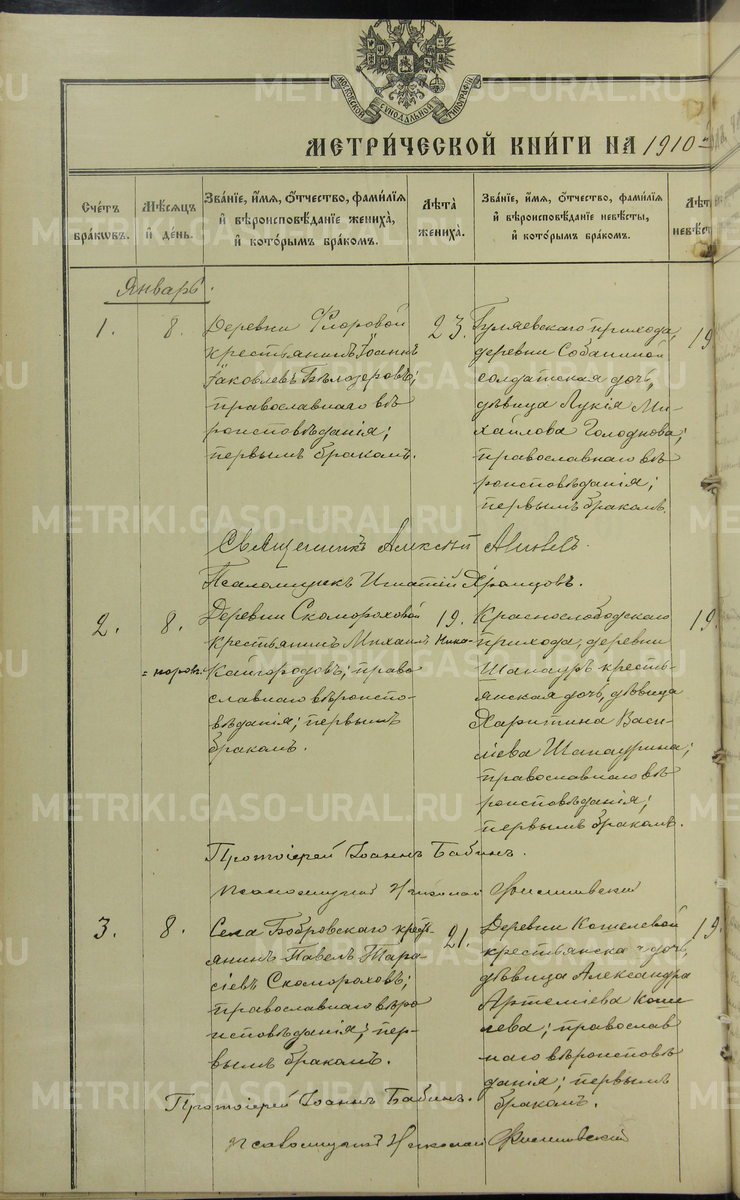 МОСКОВСКОЙ СѴНОДАЛЬНОЙ ТИПОГРАФІИ
МЕТРИ́ЧЕСКОЙ КНИ́ГИ НА 1910
Сче́тъ бра́кωвъ.
Мѣ́сяцъ и҆ де́нь.
Зва́нїе, и҆́мя, ѻ҆́тчество, фами́лїя и҆ вѣроисповѣ́данїе жениха̀, и҆ кото́рымъ бра́комъ.
Лѣ́та жениха̀.
Зва́нїе, и҆́мя, ѻ҆́тчество, фами́лїя и҆ вѣроисповѣ́данїе невѣ́сты, и҆ кото́рымъ бра́комъ.
Лѣ́т невѣ́ст
Январь.
1.
8.
Деревни Флоровой
крестьянинъ Іоаннъ
Іаковлевъ Бѣлозеровъ;
православнаго вѣ
роисповѣданія;
первымъ бракомъ.
23.
Гуляевскаго прихода,
деревни Собаниной
солдатская дочь,
дѣвица Лукія Ми-
хайлова Голоднова;
православнаго вѣ
роисповѣданія;
первымъ бракомъ.
19
Священникъ Алексій
Псаломщикъ Игнатій Храмцовъ.
2.
8.
Деревни Скомороховой
крестьянинъ Михаилъ Ника-
=норовъ Кайгородовъ; право
славнаго вѣроиспо-
вѣданія; первымъ
бракомъ.
19.
Краснослободскаго
прихода, деревни
Шанауръ кресть-
янская дочь, дѣвица
Харитина Васи-
ліева Шанаурина;
православнаго вѣ
роисповѣданія;
первымъ бракомъ.
19.
Протоіерей Іоаннъ Бабинъ.
псаломщикъ Николай
3.
8.
Села Бобровскаго кресть-
янинъ Павелъ Тара
сіевъ Скомороховъ;
православнаго вѣро
исповѣданія; пер-
вымъ бракомъ.
21.
Деревни Кошелевой
крестьянская дочь,
дѣвица Александра
Артеміева Коше
лева; православ
наго вѣроисповѣ
данія; первымъ
бракомъ.
19.
Протоіерей Іоаннъ Бабинъ.
псаломщикъ Николай
METRIKI.GASO-URAL.RU